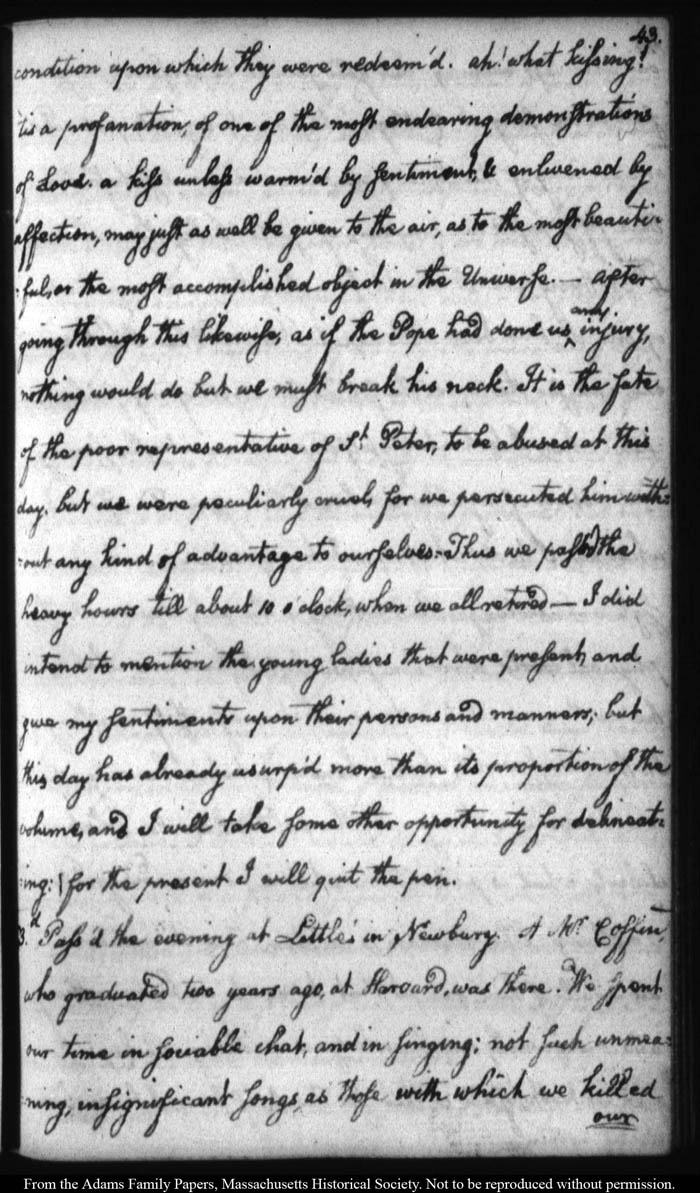 43.
condition upon which they were redeem'd. ah! what kissing!
'tis a profanation, of one of the most endearing demonstrations
of Love. a kiss unless warm'd by sentiment, & enlivened by
affection, may just as well be given to the air, as to the most beauti-
-ful, or the most accomplished object in the Universe. — after
going through this likewise, as if the Pope had done us any injury,
nothing would do but we must break his neck. It is the fate
of the poor representative of St Peter, to be abused at this
day. but we were peculiarly cruel, for we persecuted him with=
=out any kind of advantage to ourselves. Thus we pass'd the
heavy hours till about 10 o'clock, when we all retired — I did
intend to mention the young ladies that were present, and
give my sentiments upon their persons and manners; but
this day has already usurp'd more than its proportion of the
volume, and I will take some other opportunity for delineat=
=ing: for the present I will quit the pen.
3d. Pass'd the evening at Little's in Newbury. A Mr. Coffin,
who graduated two years ago, at Harvard, was there. We spent
our time in sociable chat, and in singing; not such unmea=
=ning, insignificant songs, as those with which we killed
our
From the Adams Family Papers, Massachusetts Historical Society. Not to be reproduced without permission.